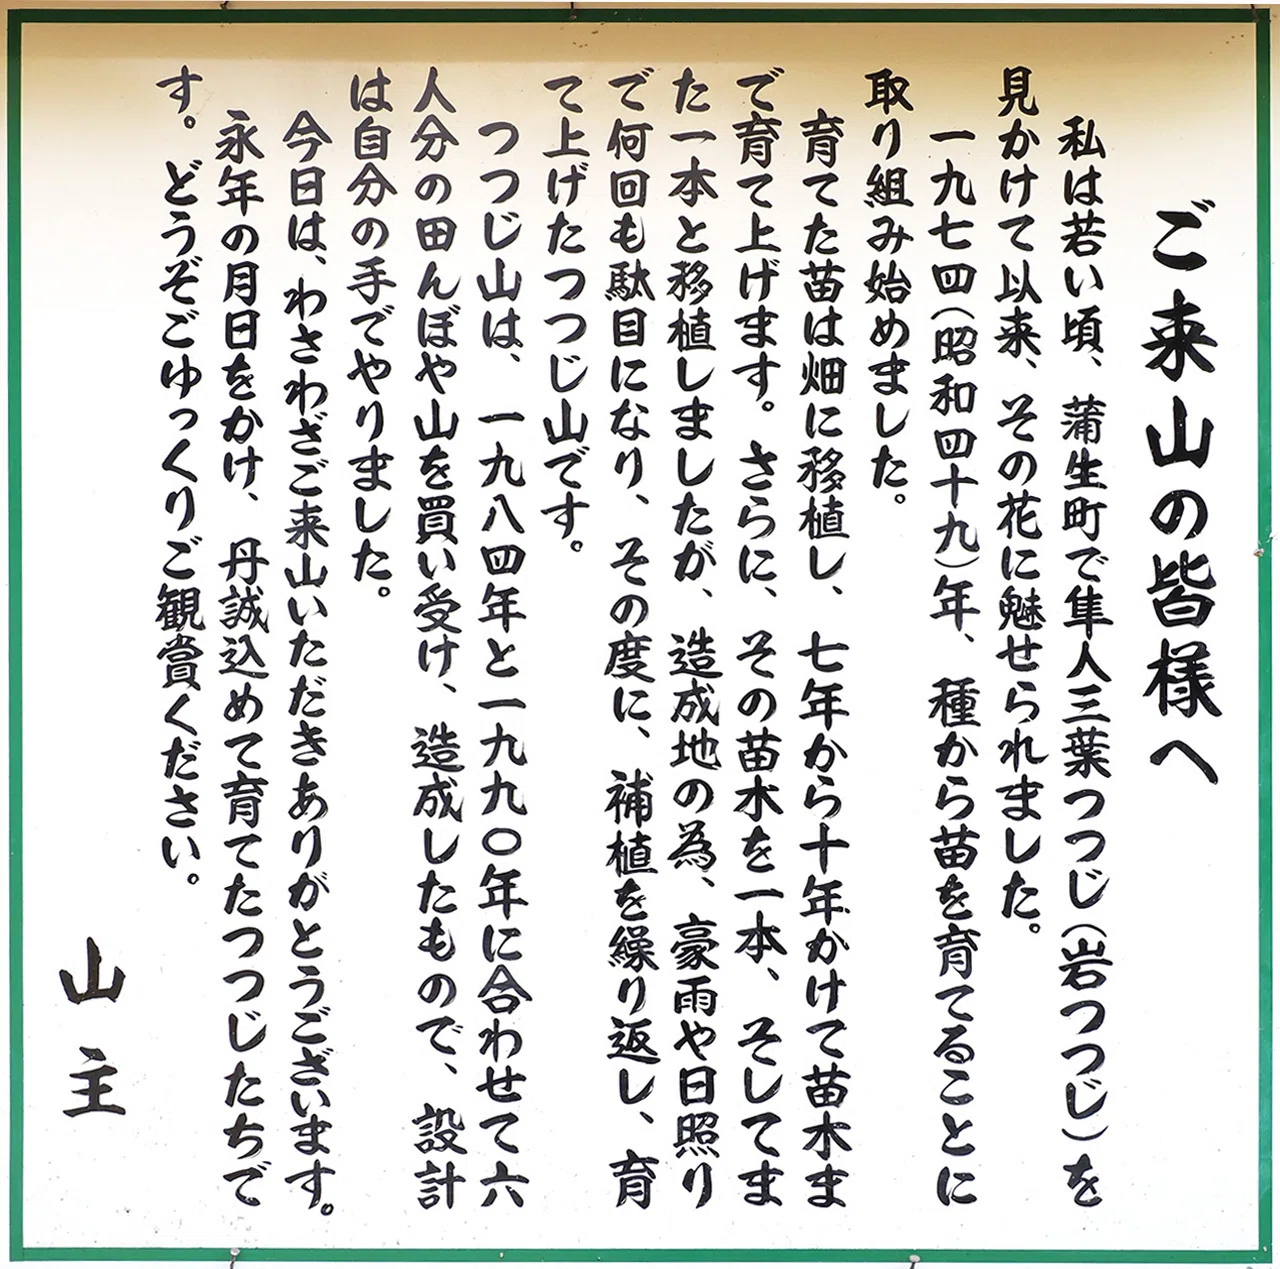 ご来山の皆様へ
私は若い頃、蒲生町で隼人三葉つつじ(岩つつじ)を
見かけて以来、その花に魅せられました。
一九七四(昭和四十九)年、種から苗を育てることに
取り組み始めました。
育てた苗は畑に移植し、七年から十年かけて苗木ま
で育て上げます。さらに、その苗木を一本、そしてま
た一本と移植しましたが、造成地の為、豪雨や日照り
で何回も駄目になり、その度に、補植を繰り返し、育
て上げたつつじ山です。
つつじ山は、一九八四年と一九九〇年に合わせて六
人分の田んぼや山を買い受け、造成したもので、設計
は自分の手でやりました。
今日は、わさわざご来山いただきありがとうございます。
永年の月日をかけ、丹誠込めて育てたつつじたちで
す。どうぞごゆっくりご観賞ください。
山主